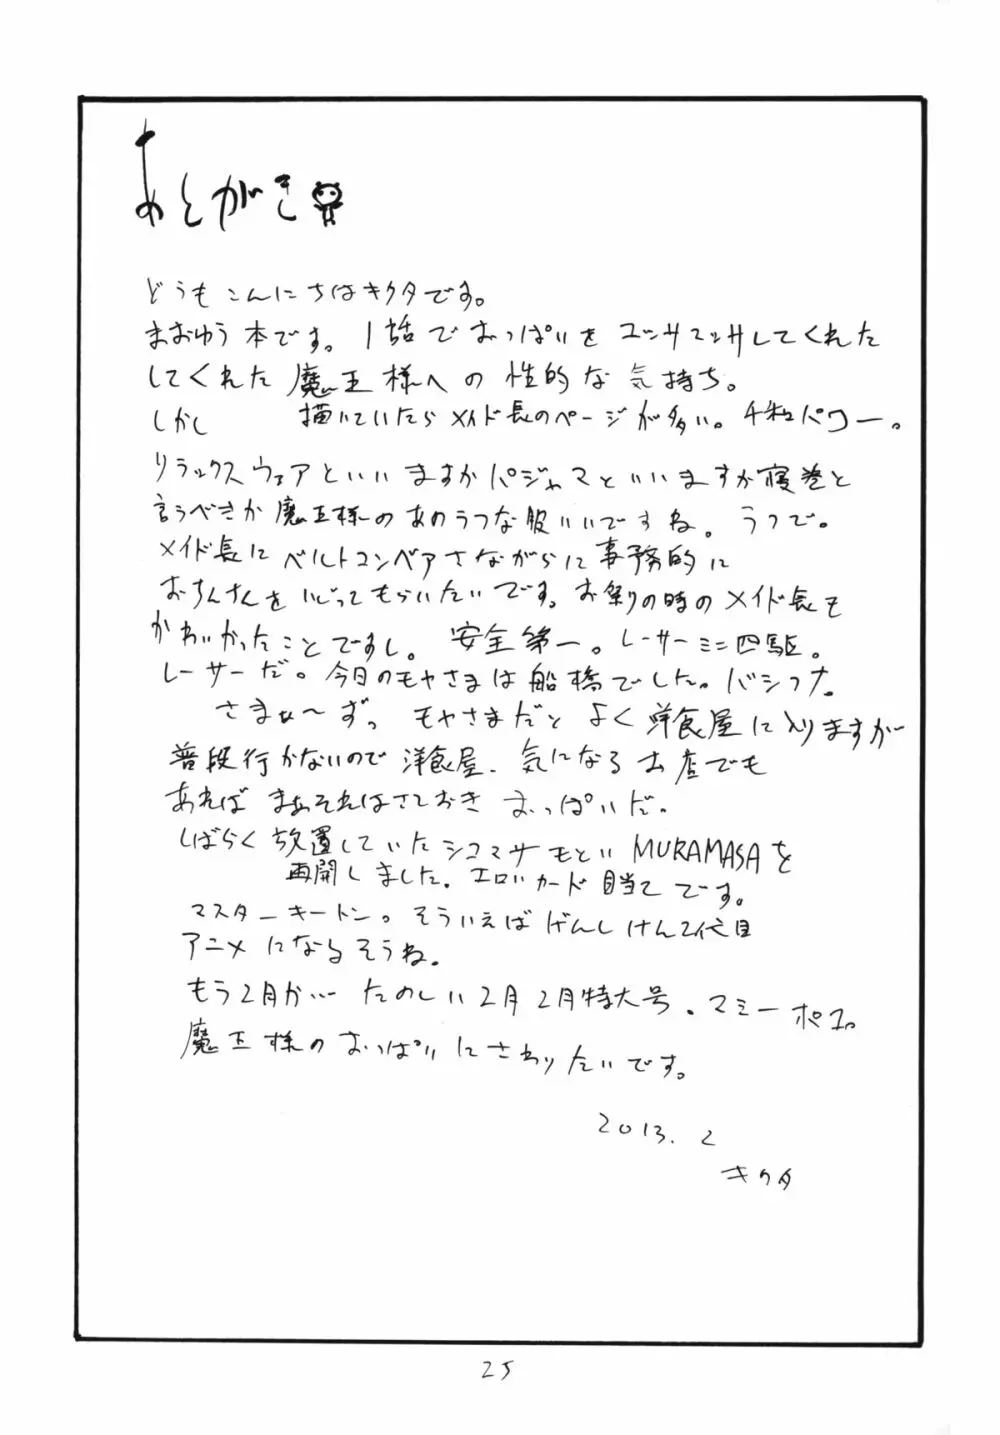 あとがき
どうもこんにちはキクタです。
まおゆう本です。1話でおっぱいをユッサユッサしてくれた
してくれた 魔王様への性的な気持ち。
しかし 描いていたらメイド長のページが多い。千和パワー。
リラックスウェアといいますかパジャマといいますか寝巻と
言うべきか魔王様のあのうつな服いいですね。うつで。
メイド長にベルトコンベアさながらに事務的に
おちんちんをいじってもらいたいです。お祭りの時のメイド長も
かわいかったことですし。安全第一。レーサーミニ四駆。
レーサーだ。今日のモヤさまは船橋でした。バシフナ。
さまぁ〜ずっ モヤさまだとよく洋食屋に入りますが
普段行かないので洋食屋、気になるお店でも
あれば まぁそれはさておき おっぱいだ。
しばらく放置していたシコマサもといMURAMASAを
再開しました。エロいカード目当てです。
マスターキートン。そういえばげんしけん2代目
アニメになるそうね。
もう2月か… たのしい2月2月特大号。マミーポコ。
魔王様のおっぱいにさわりたいです。
2013.2
キクタ
25